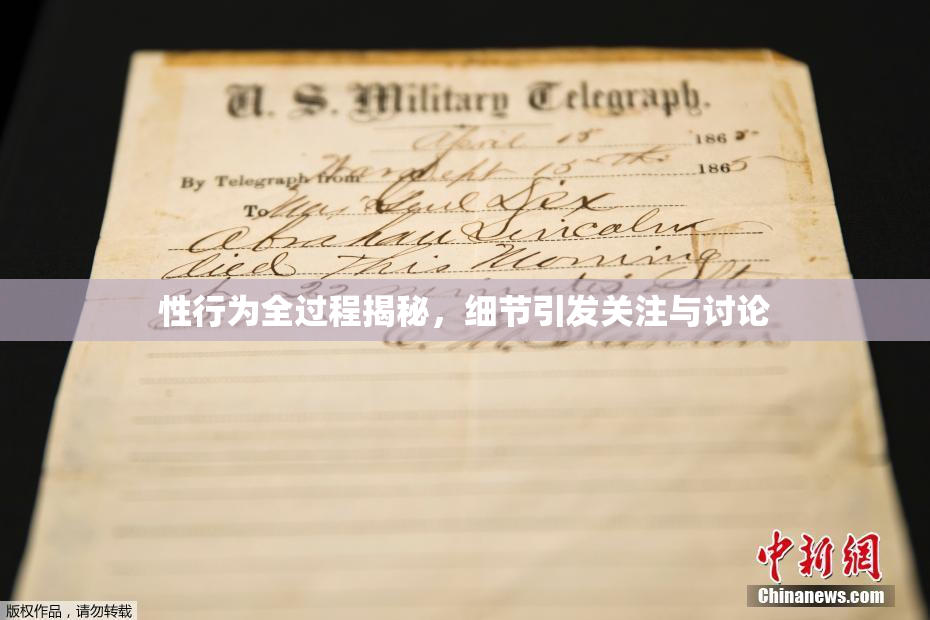 U. S. Military Telegraph.
April 15 1865
By Telegraph from War Dept 15th 1865
To Maj Genl Dix
Abraham Lincoln
died This Morning
at 22 minutes after
性行为全过程揭秘，细节引发关注与讨论
中新网
Chinanews.com
版权作品，请勿转载